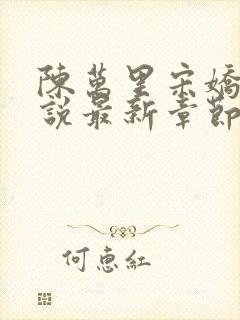 陳萬里宋嬌
說最新章節
何惠紅